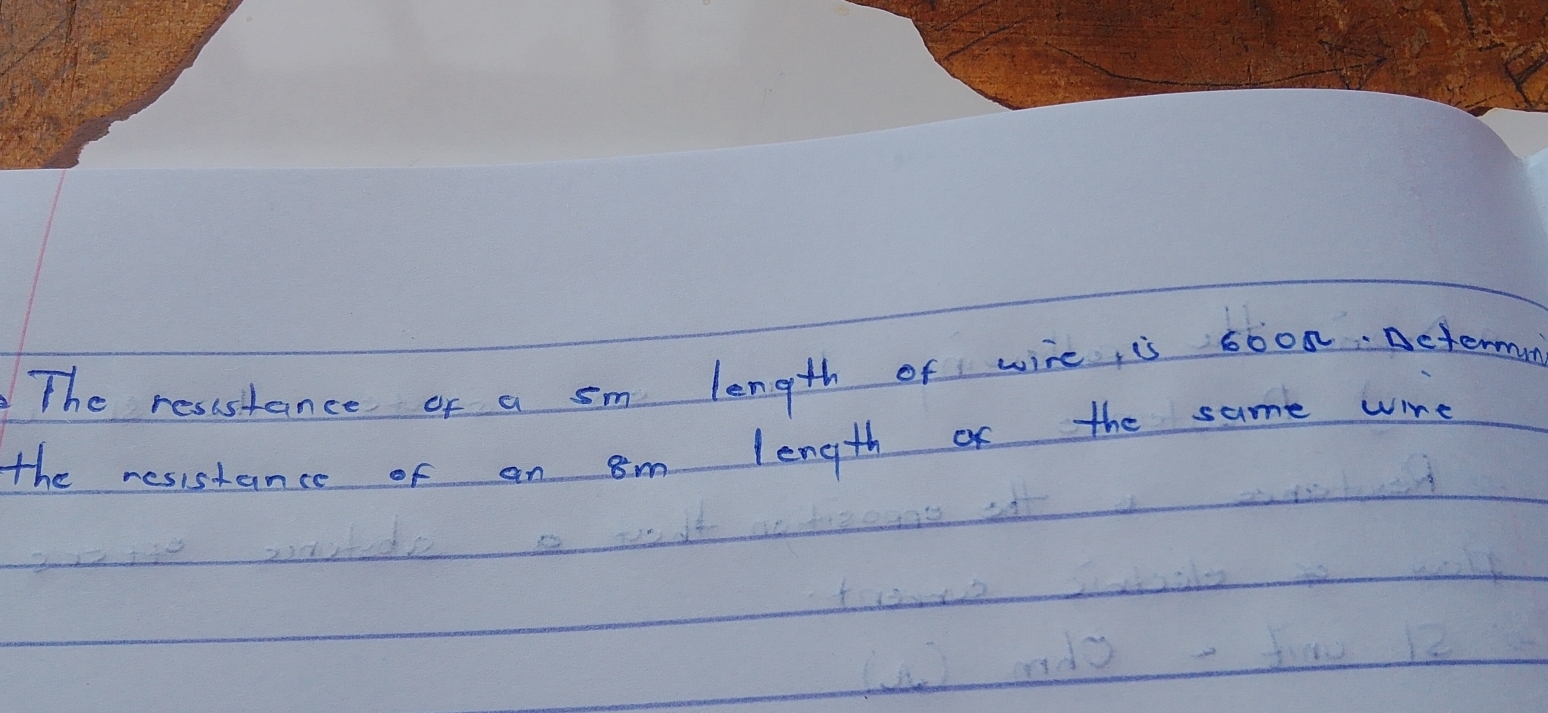 The resistance of a 5m length of wire, is 600Ω. Determin
the resistance of an 8m length of the same wire